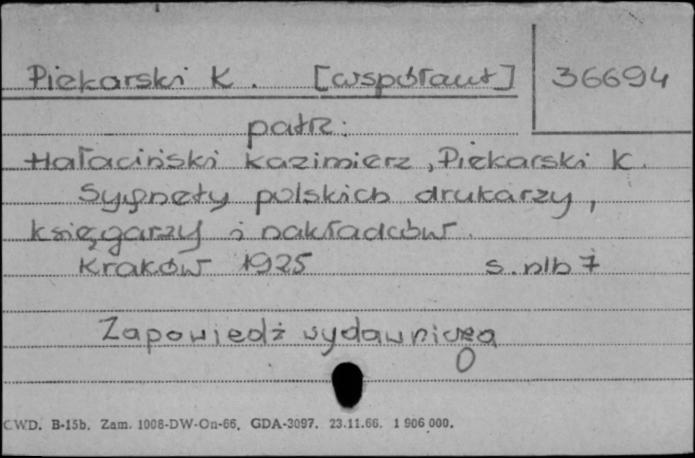 Piekarski K. [współaut] 36694
patrz:
Hałaciński Kazimierz, Piekarski K.
Sygnety polskich drukarzy,
księgarzy i nakładców.
Kraków 1925 s. nlb 7
Zapowiedź wydawnicza
CWD. B-15b. Zam. 1008-DW-On-66. GDA-3097. 23.11.66. 1 906 000.